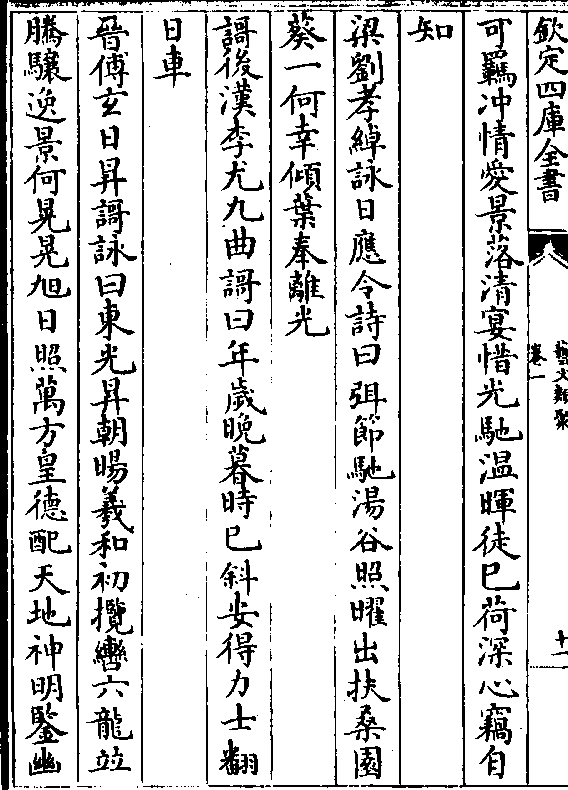 欽定四庫全書
藝文類聚
卷一
十一
可羈冲情愛景落清宴惜光馳温暉徒巳荷深心竊自
知
梁劉孝綽詠日應令詩曰弭節馳湯谷照曜出扶桑園
葵一何幸傾葉奉離光
謌後漢李尤九曲謌曰年歲晚暮時巳斜安得力士翻
日車
晉傅玄日昇謌詠曰東光昇朝暘羲和初攬轡六龍竝
騰驤逸景何晃晃旭日照萬方皇德配天地神明鑒幽